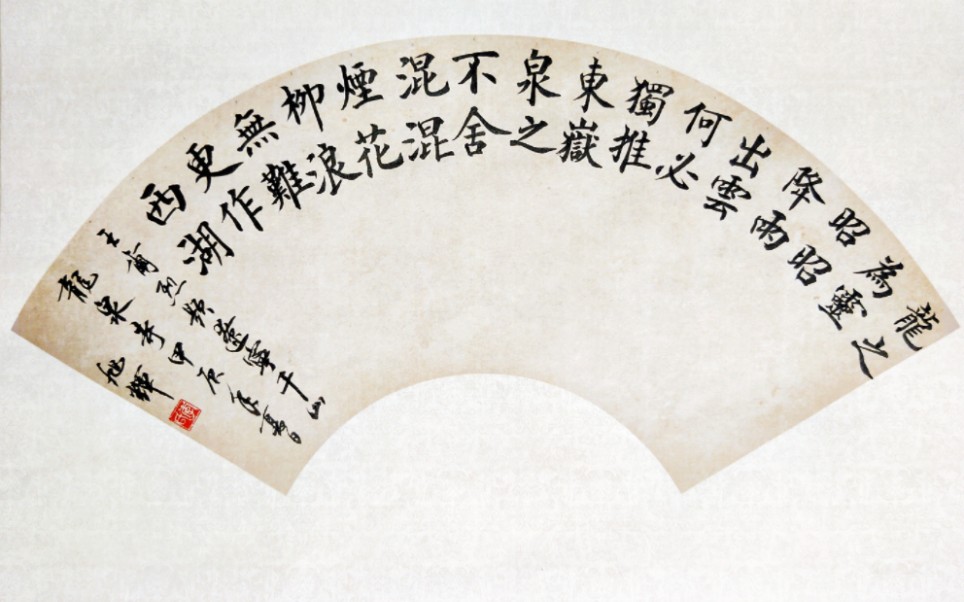 龍之
為靈
昭昭
降雨
出雲
何必
獨推
東嶽
泉之
不舍
混混
煙花
柳浪
無難
更作
西湖
王爾烈 遼寧千山
龍泉寺甲辰
旭輝